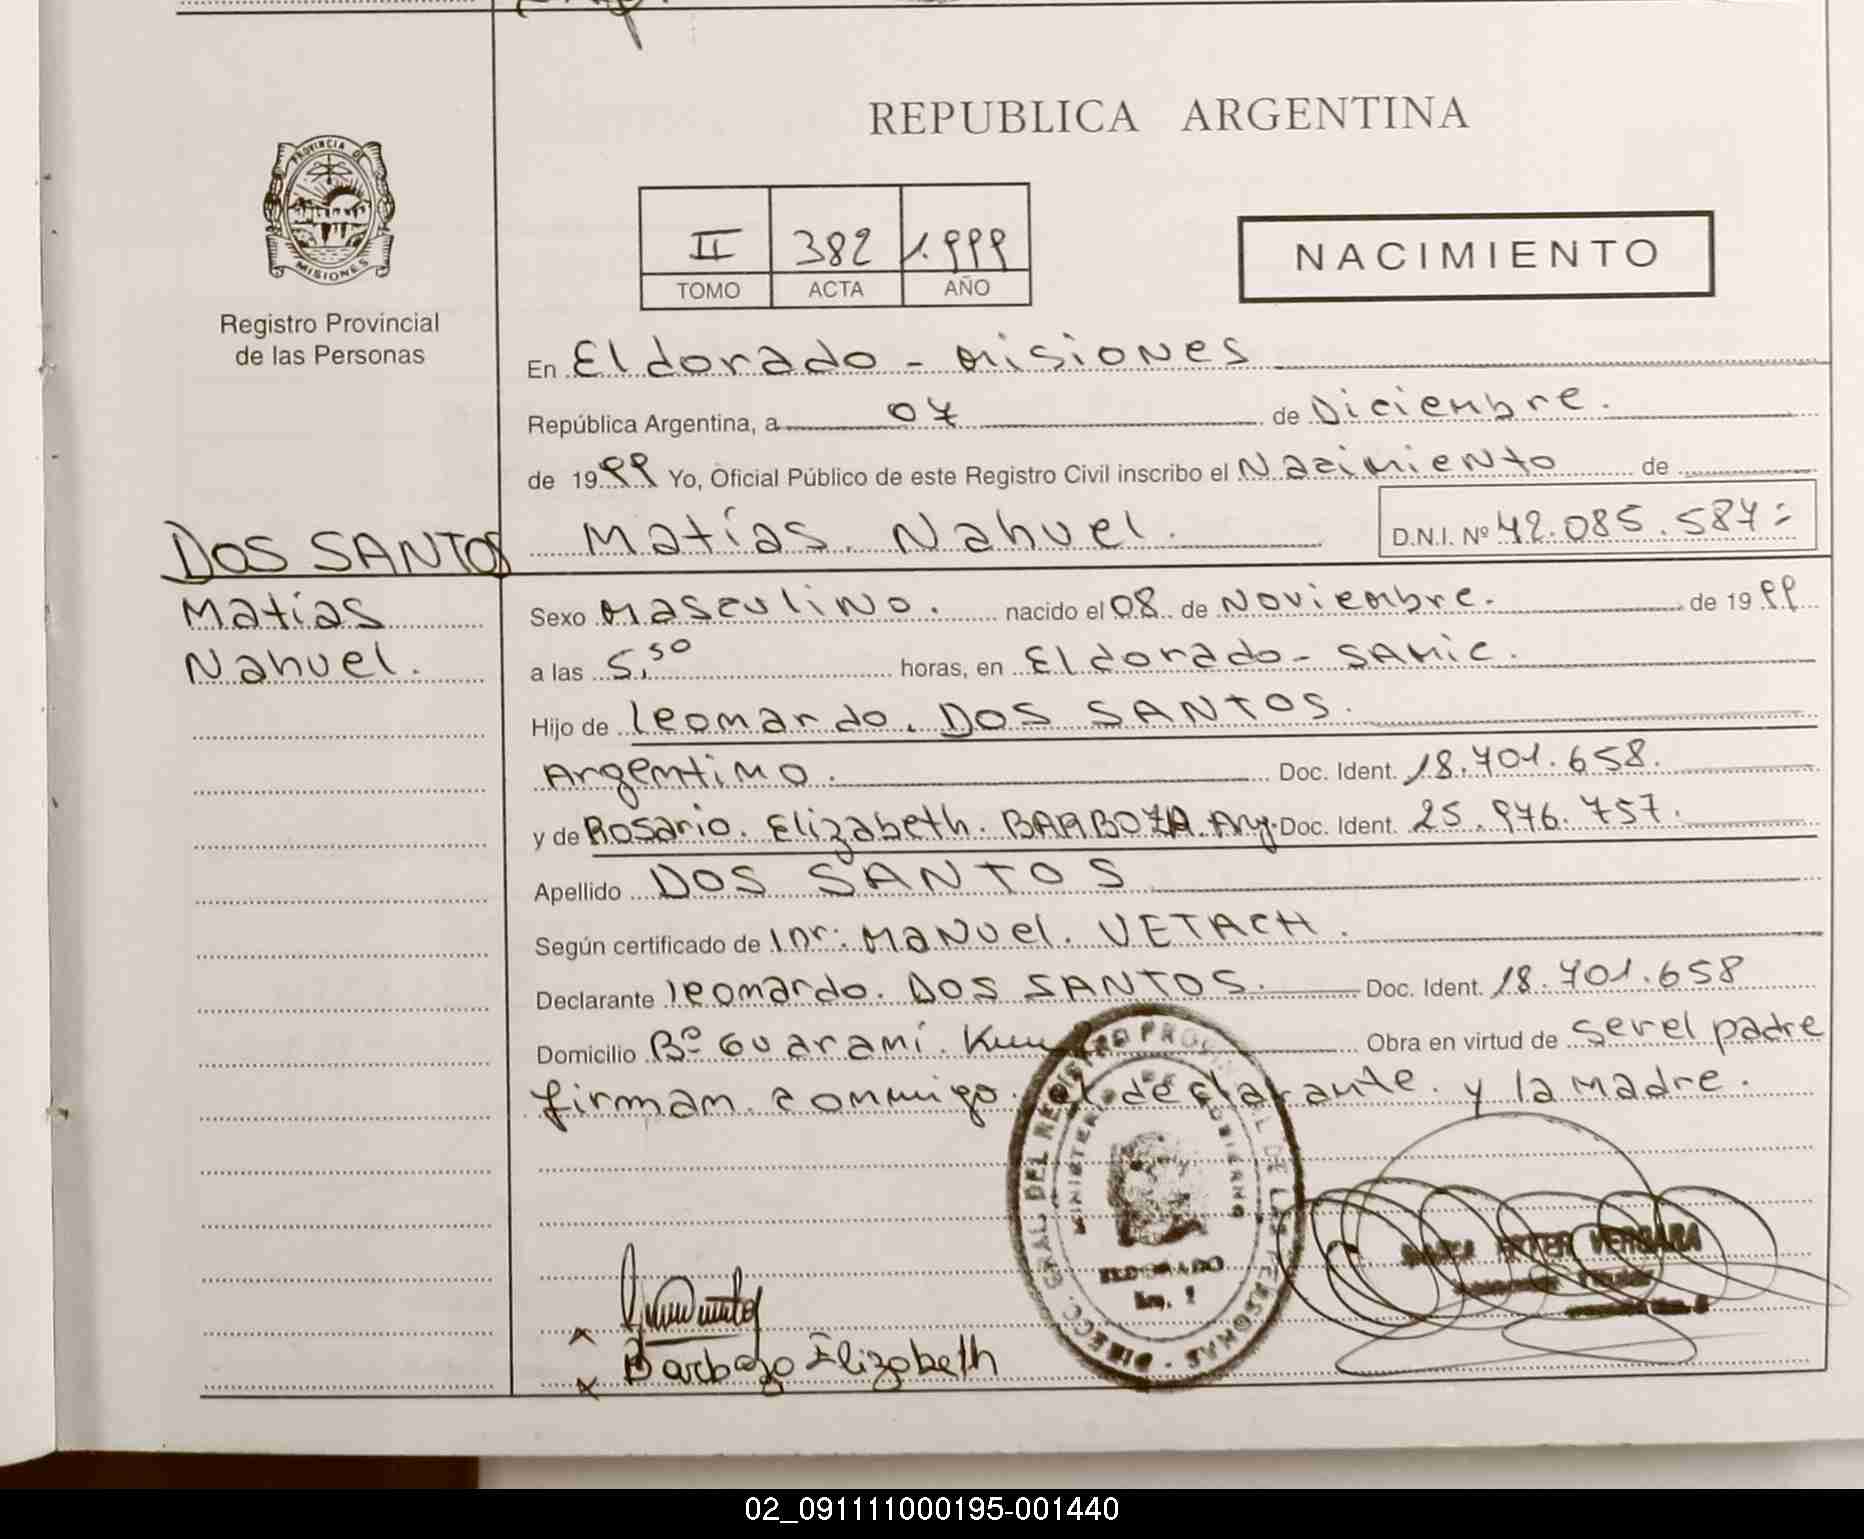 REPUBLICA ARGENTINA
PROVINCIA DE
MISIONES
Registro Provincial
de las Personas
II 382 1.999
TOMO ACTA AÑO
NACIMIENTO
En Eldorado - Misiones
República Argentina, a 07 de Diciembre.
de 1999 Yo, Oficial Público de este Registro Civil inscribo el Nacimiento de
Matías Nahuel. D.N.I. Nº 42.085.587=
DOS SANTOS
Matías
Nahuel.
Sexo Masculino. nacido el 08 de Noviembre. de 1999
a las 5,50 horas, en Eldorado - SAMIC.
Hijo de Leonardo. DOS SANTOS.
Argentino. Doc. Ident. 18.701.658.
y de Rosario. Elizabeth. BARBOZA. Arg. Doc. Ident. 25.976.757.
Apellido DOS SANTOS
Según certificado de Manuel. VETACH.
Declarante Leonardo. DOS SANTOS. Doc. Ident. 18.701.658
Domicilio Bº Guaraní. Obra en virtud de ser el padre
firman conmigo. el declarante. y la madre.
DIRECC. GRAL. DEL REGISTRO PROVINCIAL DE LAS PERSONAS
MINISTERIO DE GOBIERNO
ELDORADO
VERGARA
x
x Barbozo Elizabeth
02_091111000195-001440